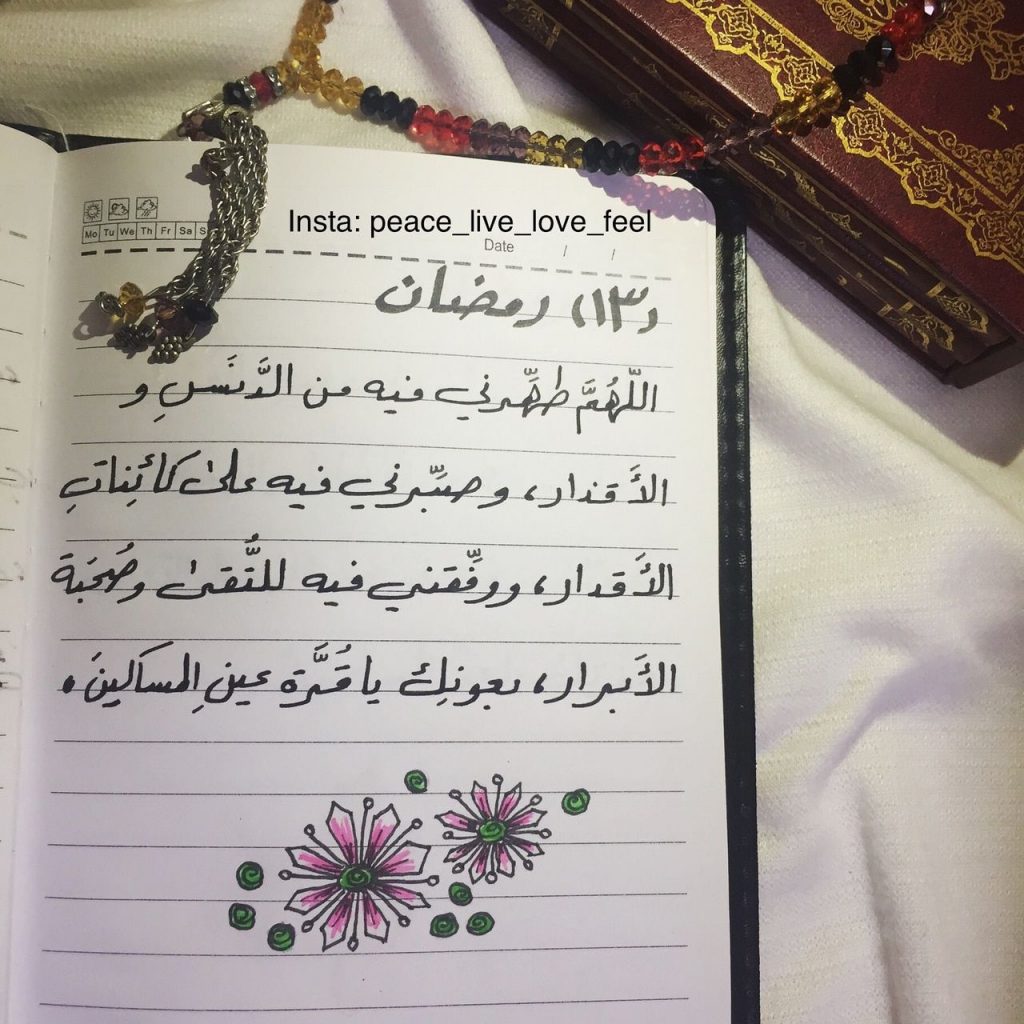 Insta: peace_live_love_feel
Mo Tu We Th Fr Sa S
Date / /
(١٣) رمضان
اللّهُمَّ طهِّرني فيه من الدَّنَسِ و
الأَقذار، و صبِّرني فيه على كائِناتِ
الأَقدار، ووفِّقني فيه للتُّقى وصُحبَة
الأَبرار، بعونِك يا قُرَّة عينِ المساكينَ.
٣٠